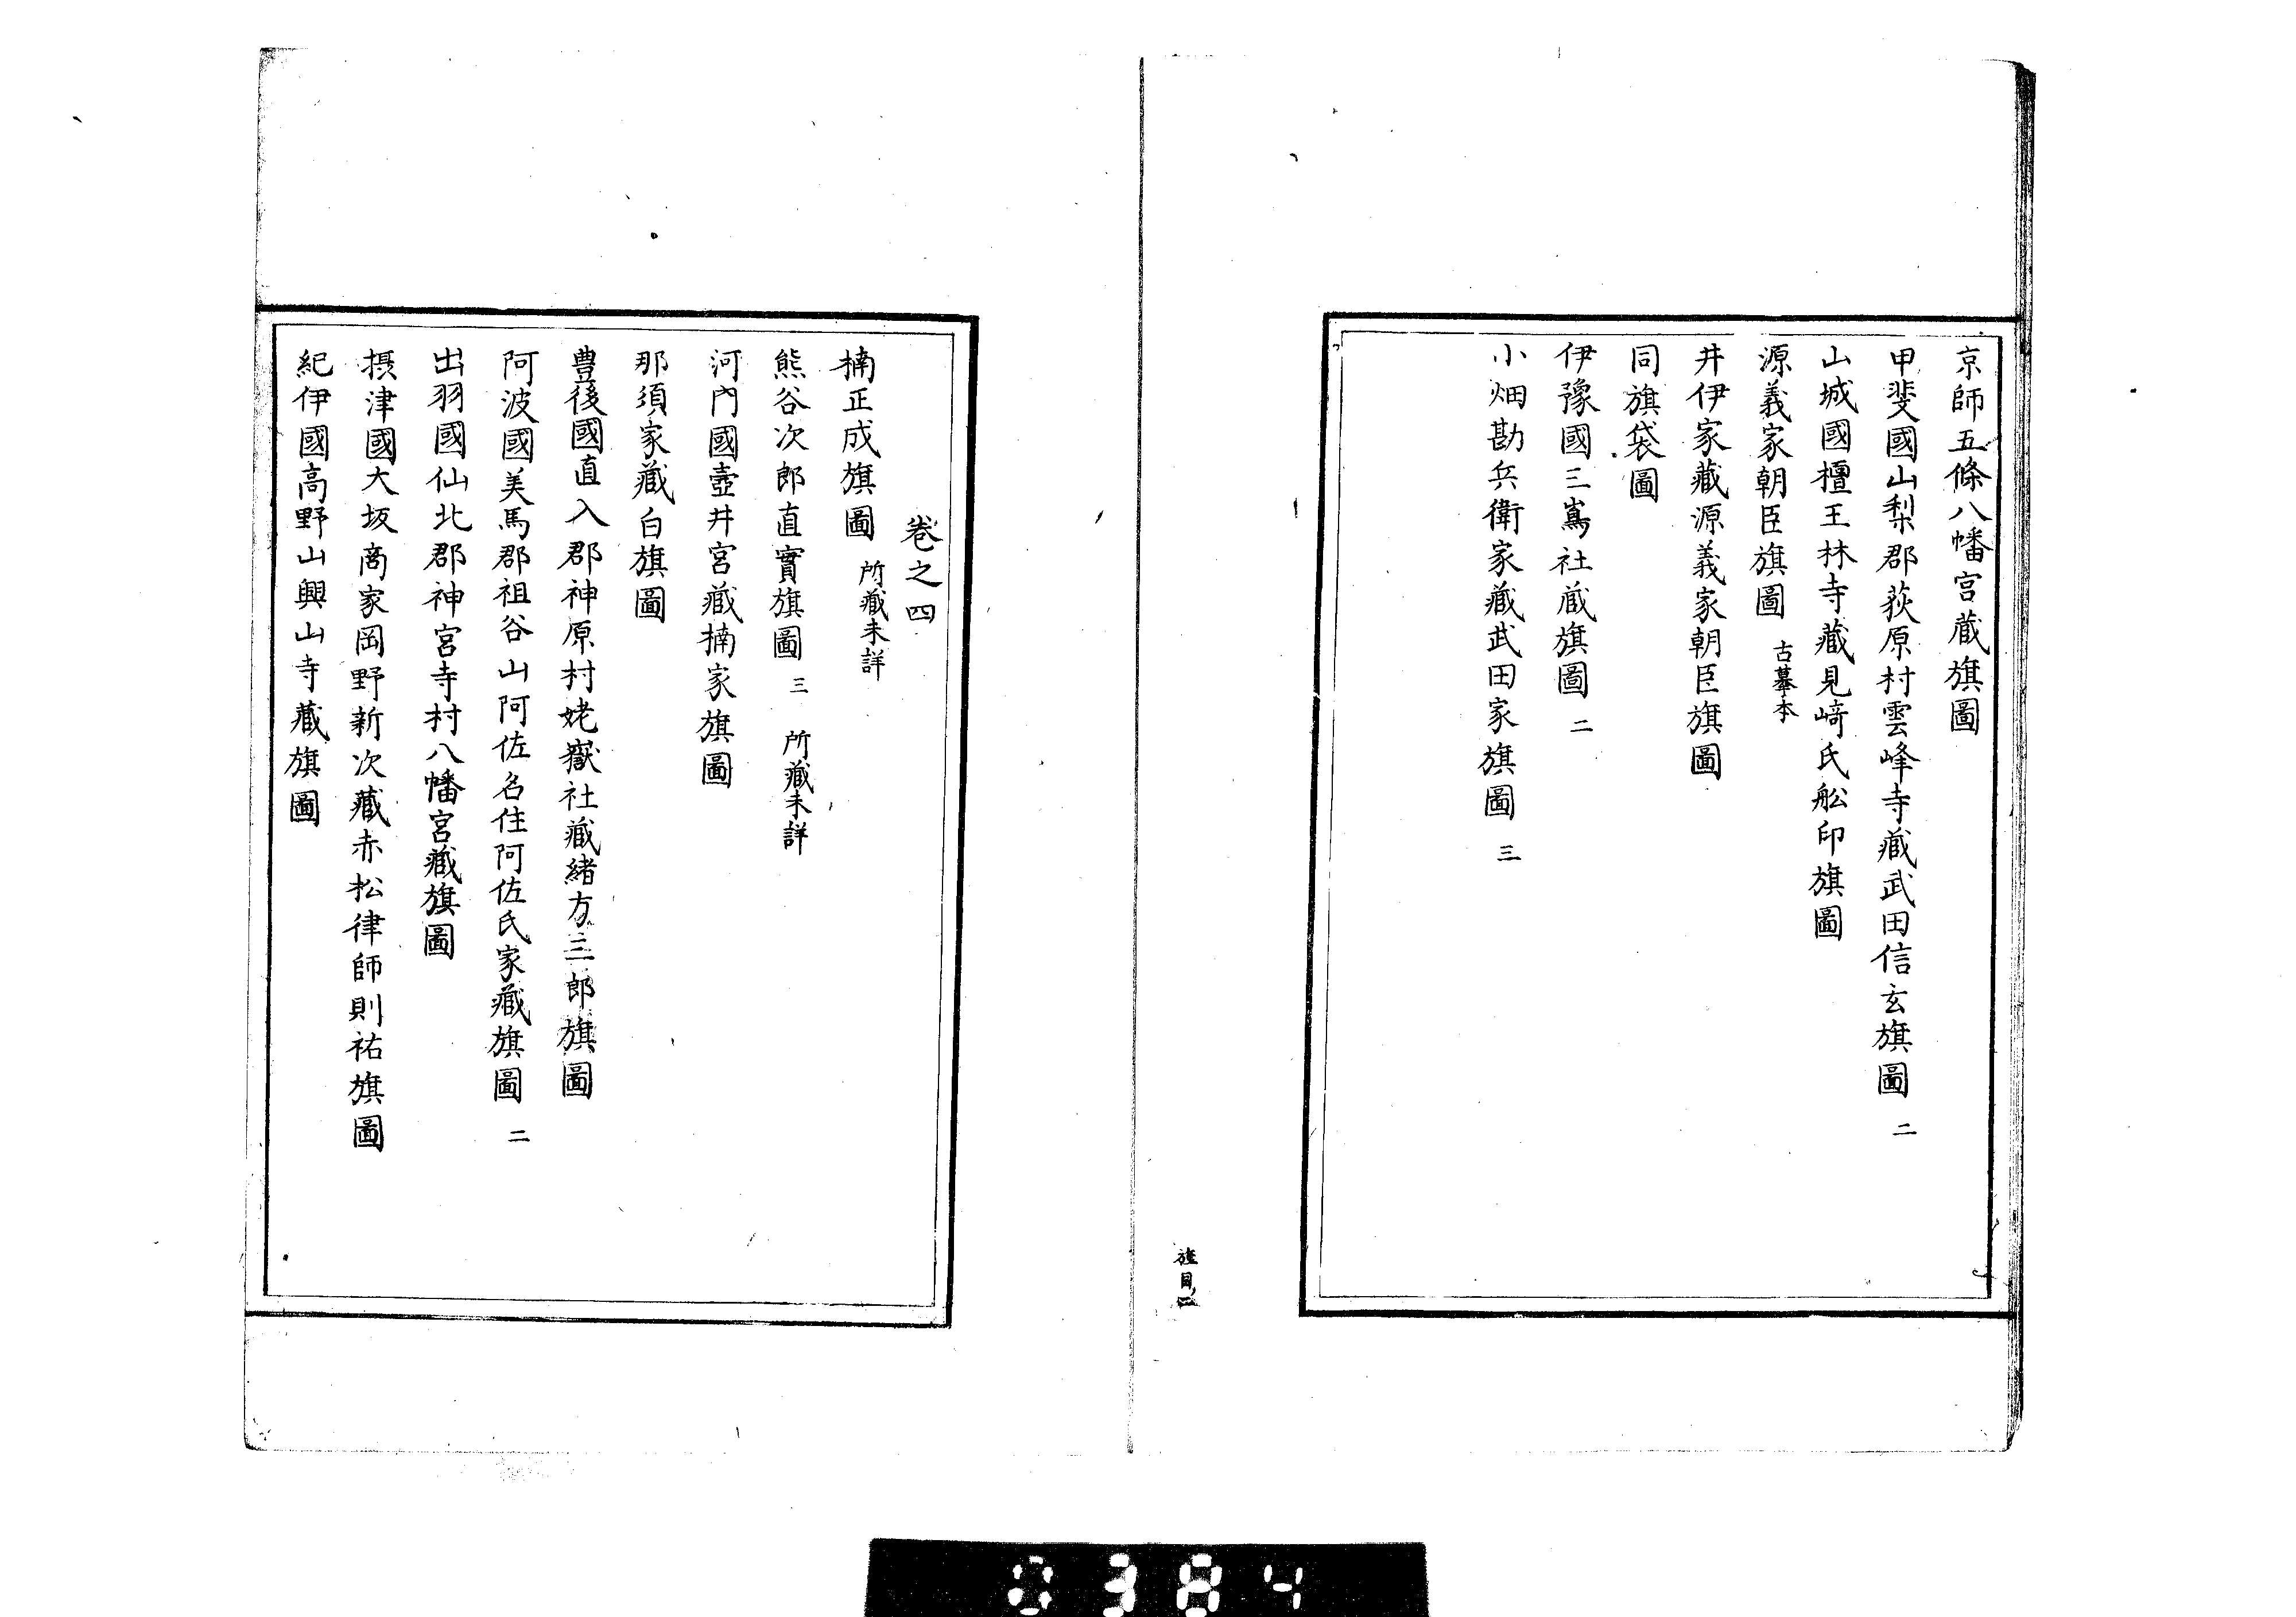 京師五條八幡宮藏旗圖
甲斐國山梨郡荻原村雲峰寺藏武田信玄旗圖 二
山城國檀王林寺藏見﨑氏舩印旗圖
源義家朝臣旗圖 古摹本
井伊家藏源義家朝臣旗圖
同旗袋圖
伊豫國三嶌社藏旗圖 二
小畑勘兵衛家藏武田家旗圖 三
旌目四
卷之四
楠正成旗圖 所藏未詳
熊谷次郎直實旗圖 三 所藏未詳
河內國壺井宮藏楠家旗圖
那須家藏白旗圖
豊後國直入郡神原村姥嶽社藏緒方三郎旗圖
阿波國美馬郡祖谷山阿佐名住阿佐氏家藏旗圖 二
出羽國仙北郡神宮寺村八幡宮藏旗圖
摂津國大坂商家岡野新次藏赤松律師則祐旗圖
紀伊國高野山興山寺藏旗圖
0384